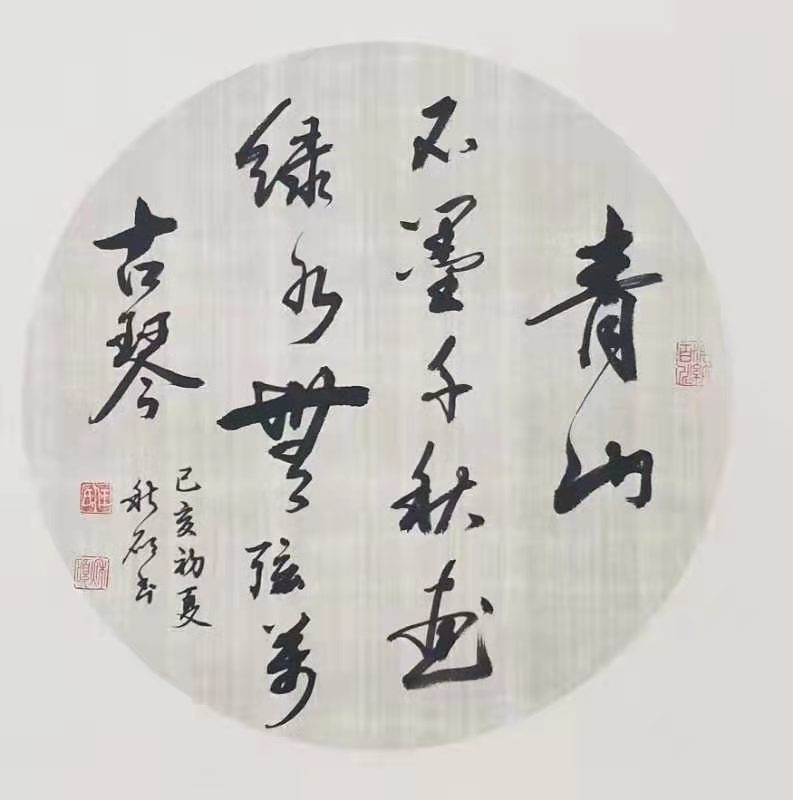 青山
不墨千秋画
绿水無弦萬
古琴
己亥初夏
秋 书